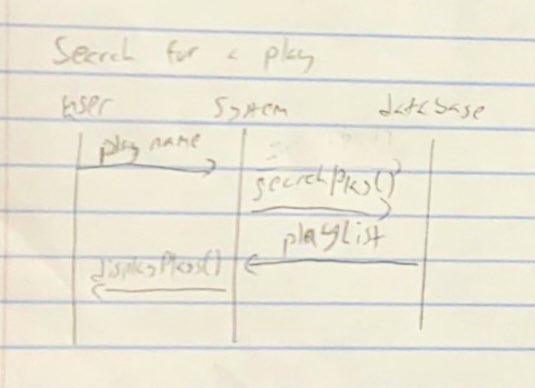 Search for a play
user system database
play name
searchPlays()
playList
displayPlays()